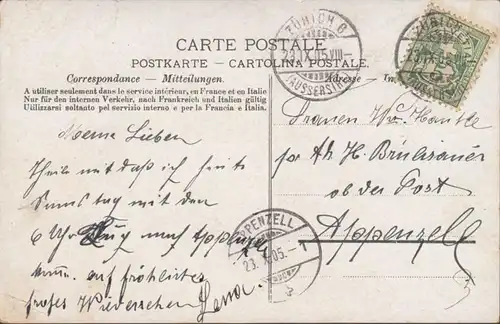 CARTE POSTALE
POSTKARTE - CARTOLINA POSTALE
Correspondance - Mitteilungen.
Adresse -
A utiliser seulement dans le service intérieur, en France et en Italie
Nur für den internen Verkehr, nach Frankreich und Italien gültig
Utilizzarsi soltanto pel servizio interno e per la Francia e Italia.
Meine Lieben
Theile mit daß ich heute
Samstag mit dem
6 Uhr Zug nach Appenzell
komme. auf fröhliches
frohes Wiedersehen
Frauen
pr Ad. H.
ob der Post
Appenzell
ZÜRICH 6
23.IX.05.VIII
(AUSSERSIHL)
APPENZELL
23.IX.05.